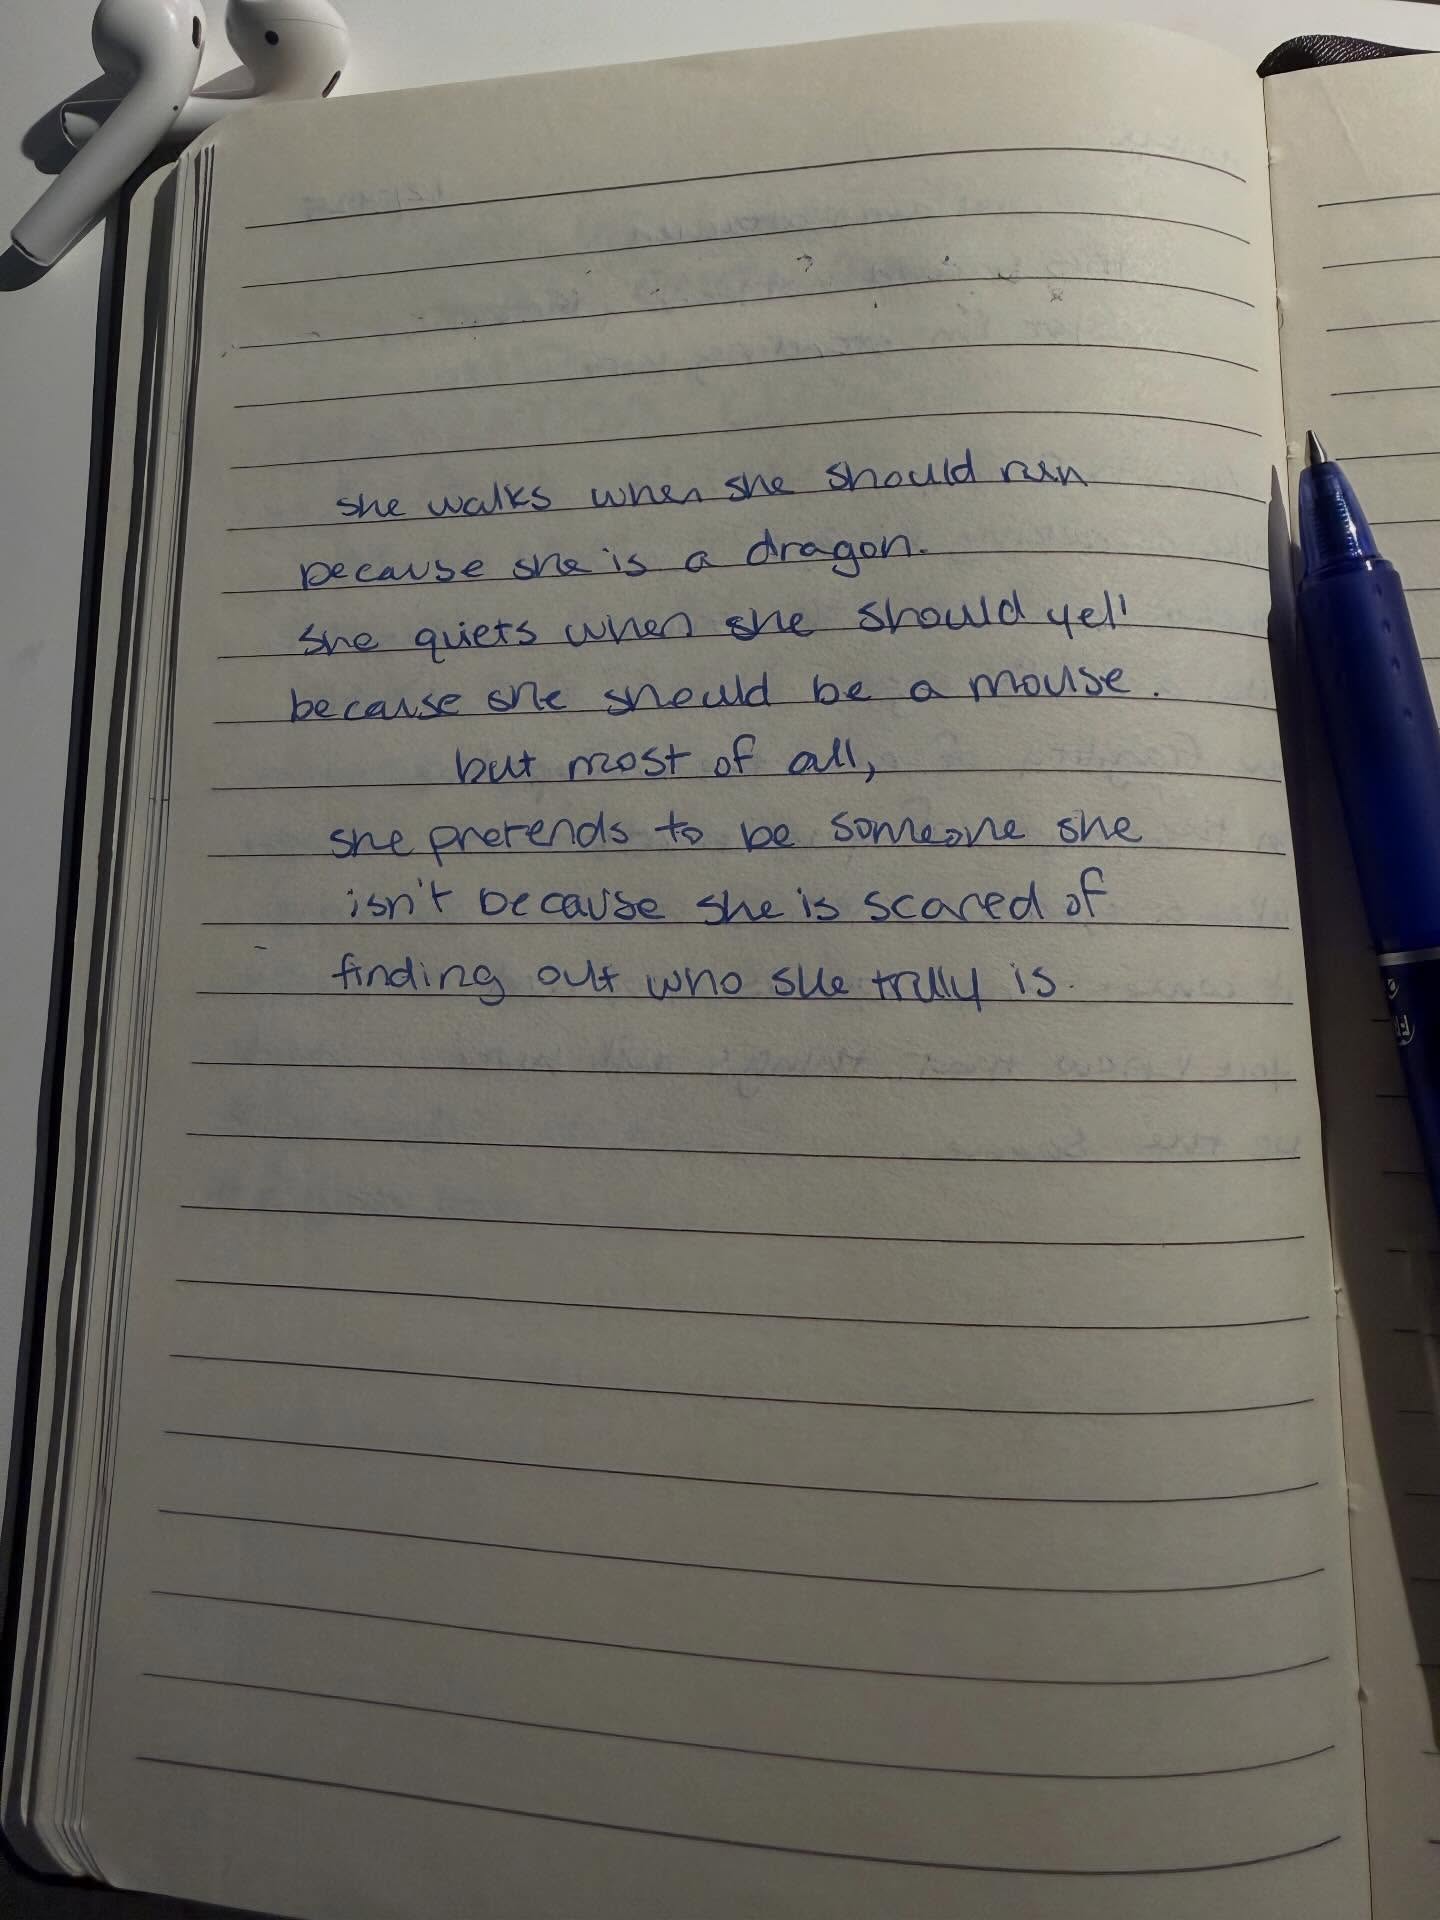 she walks when she should run
because she is a dragon.
she quiets when she should yell
because she should be a mouse.
but most of all,
she pretends to be someone she
isn't because she is scared of
finding out who she trully is.